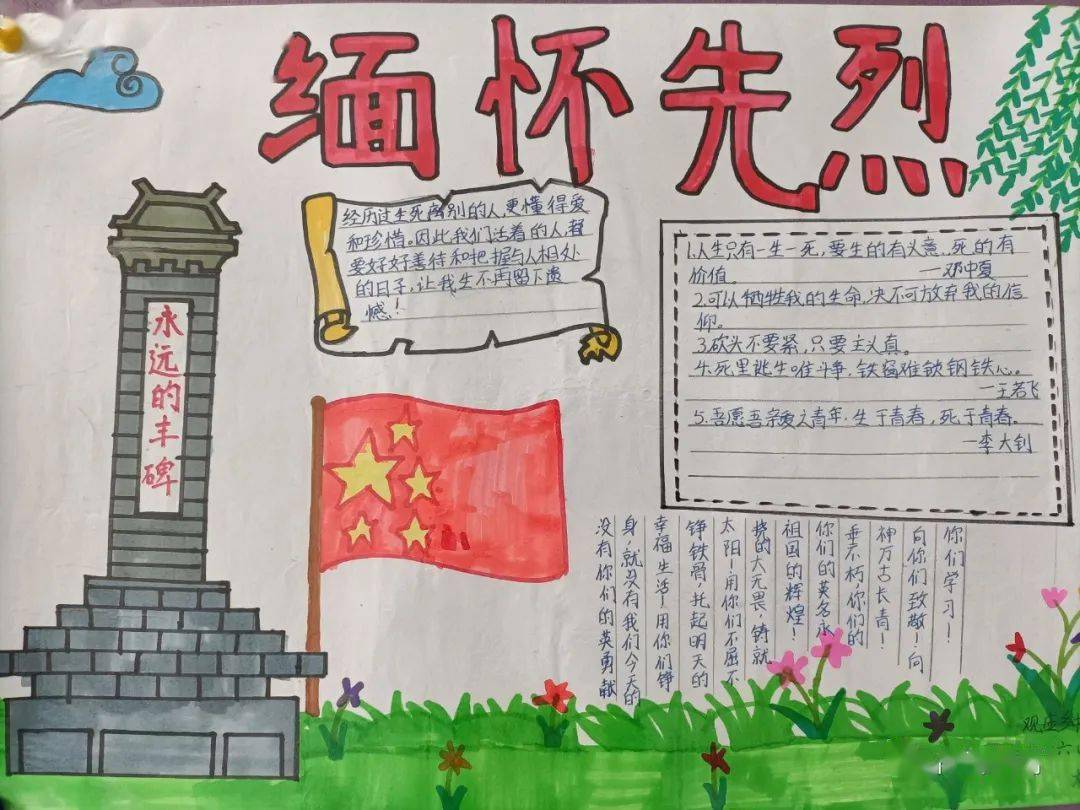 缅怀先烈
永远的丰碑
经历过生死离别的人,更懂得爱
和珍惜。因此我们活着的人,都
要好好善待和把握与人相处
的日子,让我生不再留下遗
憾!
1.人生只有一生一死,要生的有义意,死的有
价值。 —邓中夏
2.可以牺牲我的生命,决不可放弃我的信
仰。
3.砍头不要紧,只要主义真。
4.死里逃生唯斗争,铁窗难锁钢铁心。
—王若飞
5.吾愿吾亲爱之青年.生于青春,死于青春。
—李大钊
没有你们的英勇献
身,就没有我们今天的
幸福生活!用你们铮
铮铁骨,托起明天的
太阳!用你们不屈不
挠的大无畏 铸就
祖国的辉煌!
你们的英名永
垂不朽,你们的
神万古长青!
向你们致敬!向
你们学习!
六